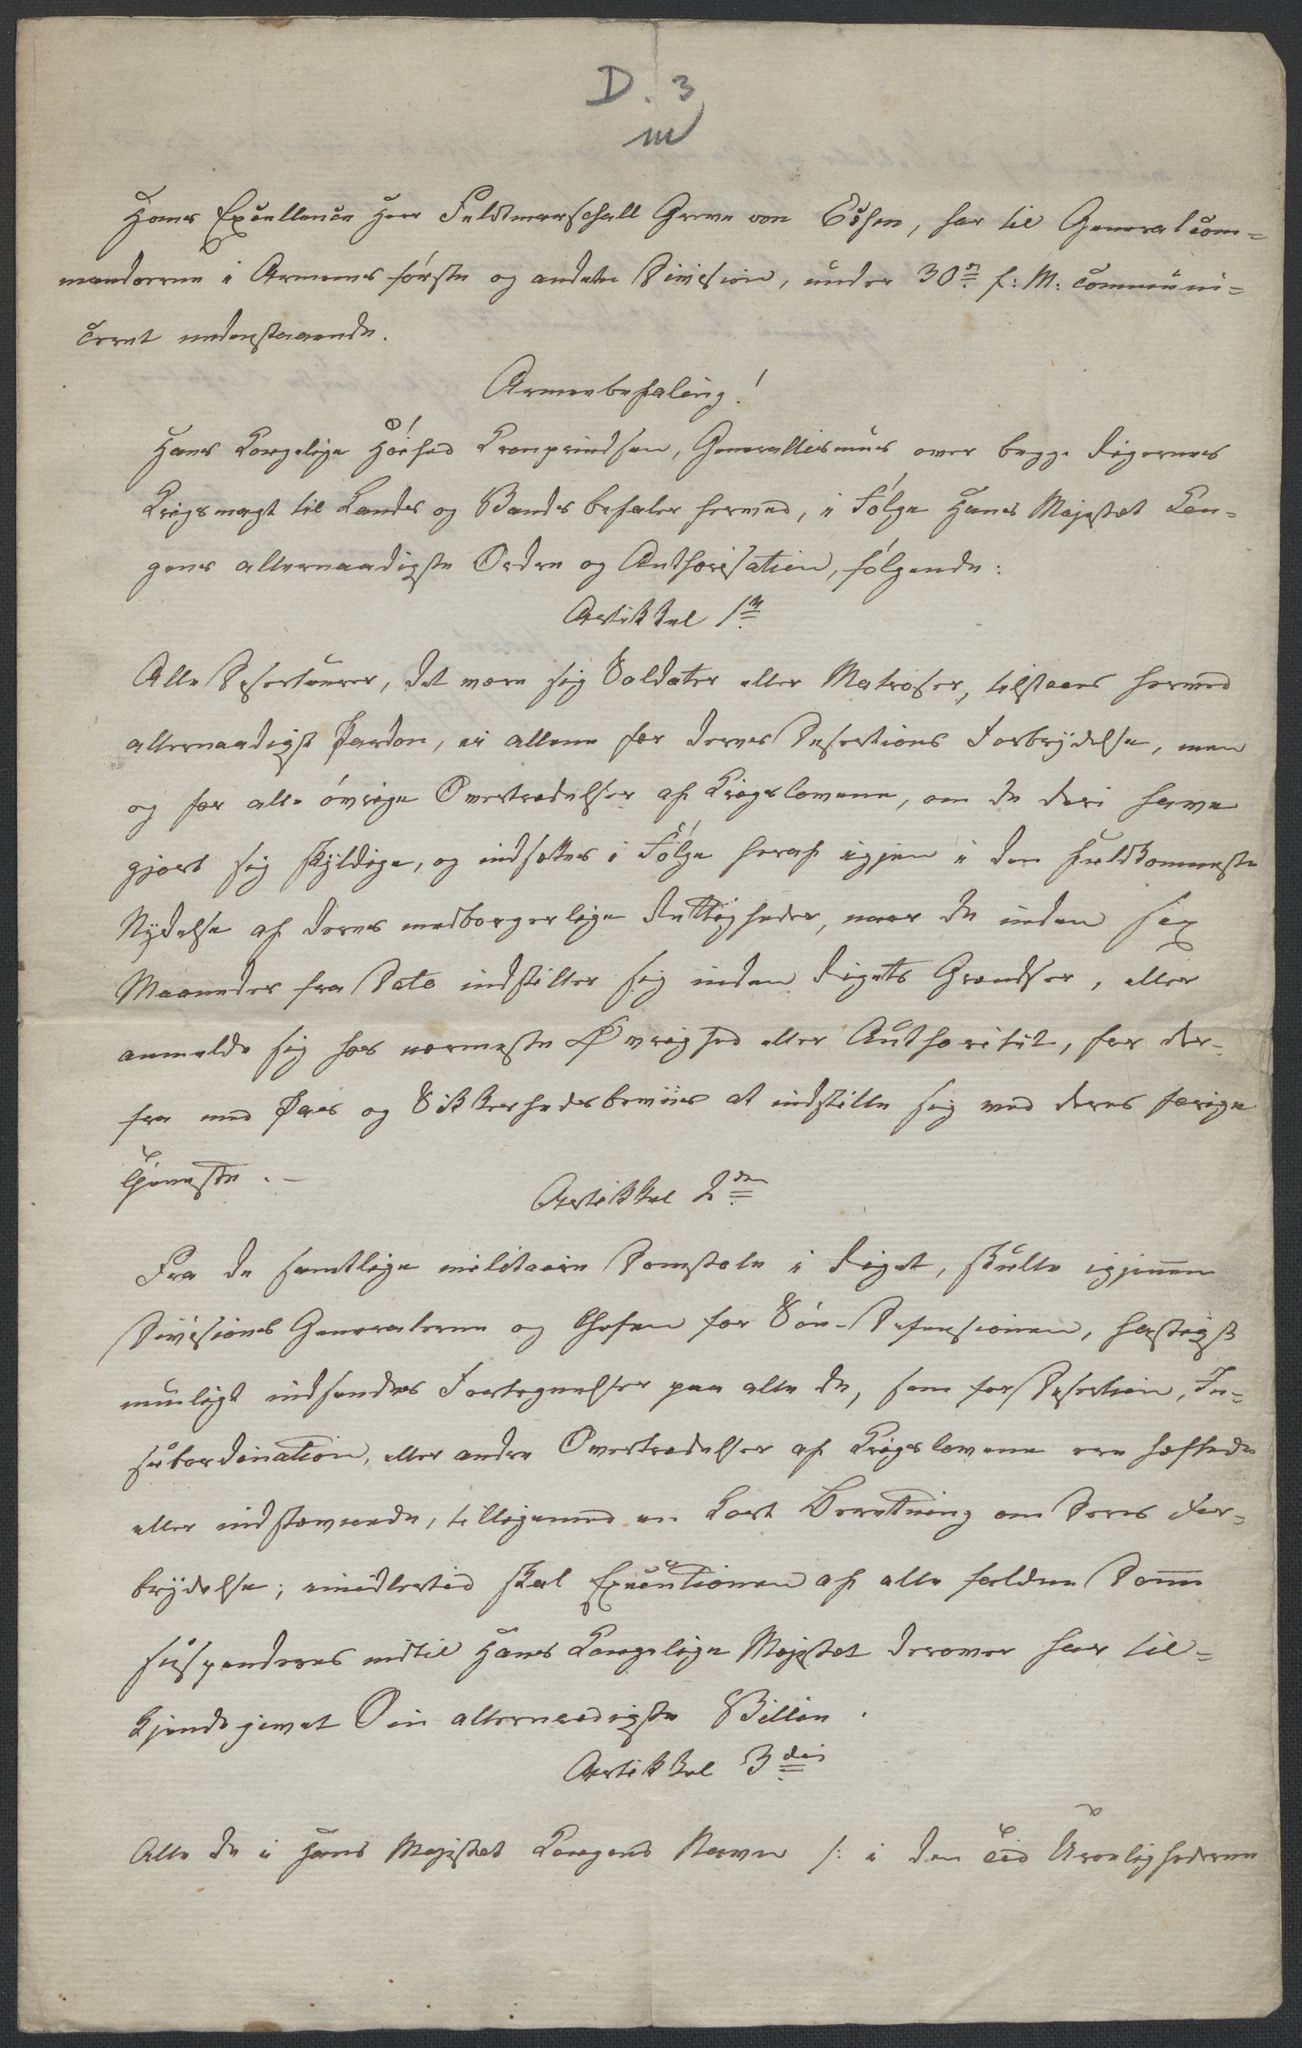 D. 3
m
Hans Excellence Herr Feldtmarschall Greve von Essen, har til Generalcom=
mandoerne i Armeens förste og anden Division, under 30n f: M: communi=
ceret nedenstaaende.
Armeebefaling!
Hans Kongelige Höihed Kronprindsen, Generallissimus over begge Rigernes
Krigsmagt til Lands og Vands befaler herved, i Fölge Hans Majestæt Kon=
gens allernaadigste Ordre og Authorisation, fölgende:
Artikkel 1ste
Alle Deserteurer, det være sig Soldater eller Matroser, tilstaaes herved
allernaadigst Pardon, ei allene for deres Desertions Forbrydelse, men
og for alle övrige Overtrædelser af Krigslovene, om de deri have
gjort sig skyldige, og indsættes i Fölge heraf igjen i den fuldkomneste
Nydelse af deres medborgerlige Rettigheder, naar de inden sex
Maaneder fra Dato indstiller sig inden Rigets Grændser, eller
anmelde sig hos nærmeste Øvrighed eller Authoritet, for der=
fra med Pas og Sikkerhedsbeviis at indstille sig ved deres forige
Tjeneste. -
Artikkel 2den
Fra de samtlige militaire Domstole i Riget, skulle igjennem
Divisions Generalerne og Chefen for Söe-Defensionen, hastigst
mueligt indsendes Fortegnelser paa alle de, som for Desertion, In=
subordination, eller andre Overtrædelser af Krigslovene ere hæftede
eller indstævnede, tilligemed en kort Beretning om deres For=
brydelse; imidlertid skal Executionen af alle faldne Domme
suspenderes indtil Hans Kongelige Majestæt derover har til=
kjendegivet Sin allernaadigste Villie.
Artikkel 3die
Alle de i Hans Majestæt Kongens Navn /: i den Tid Uroelighederne